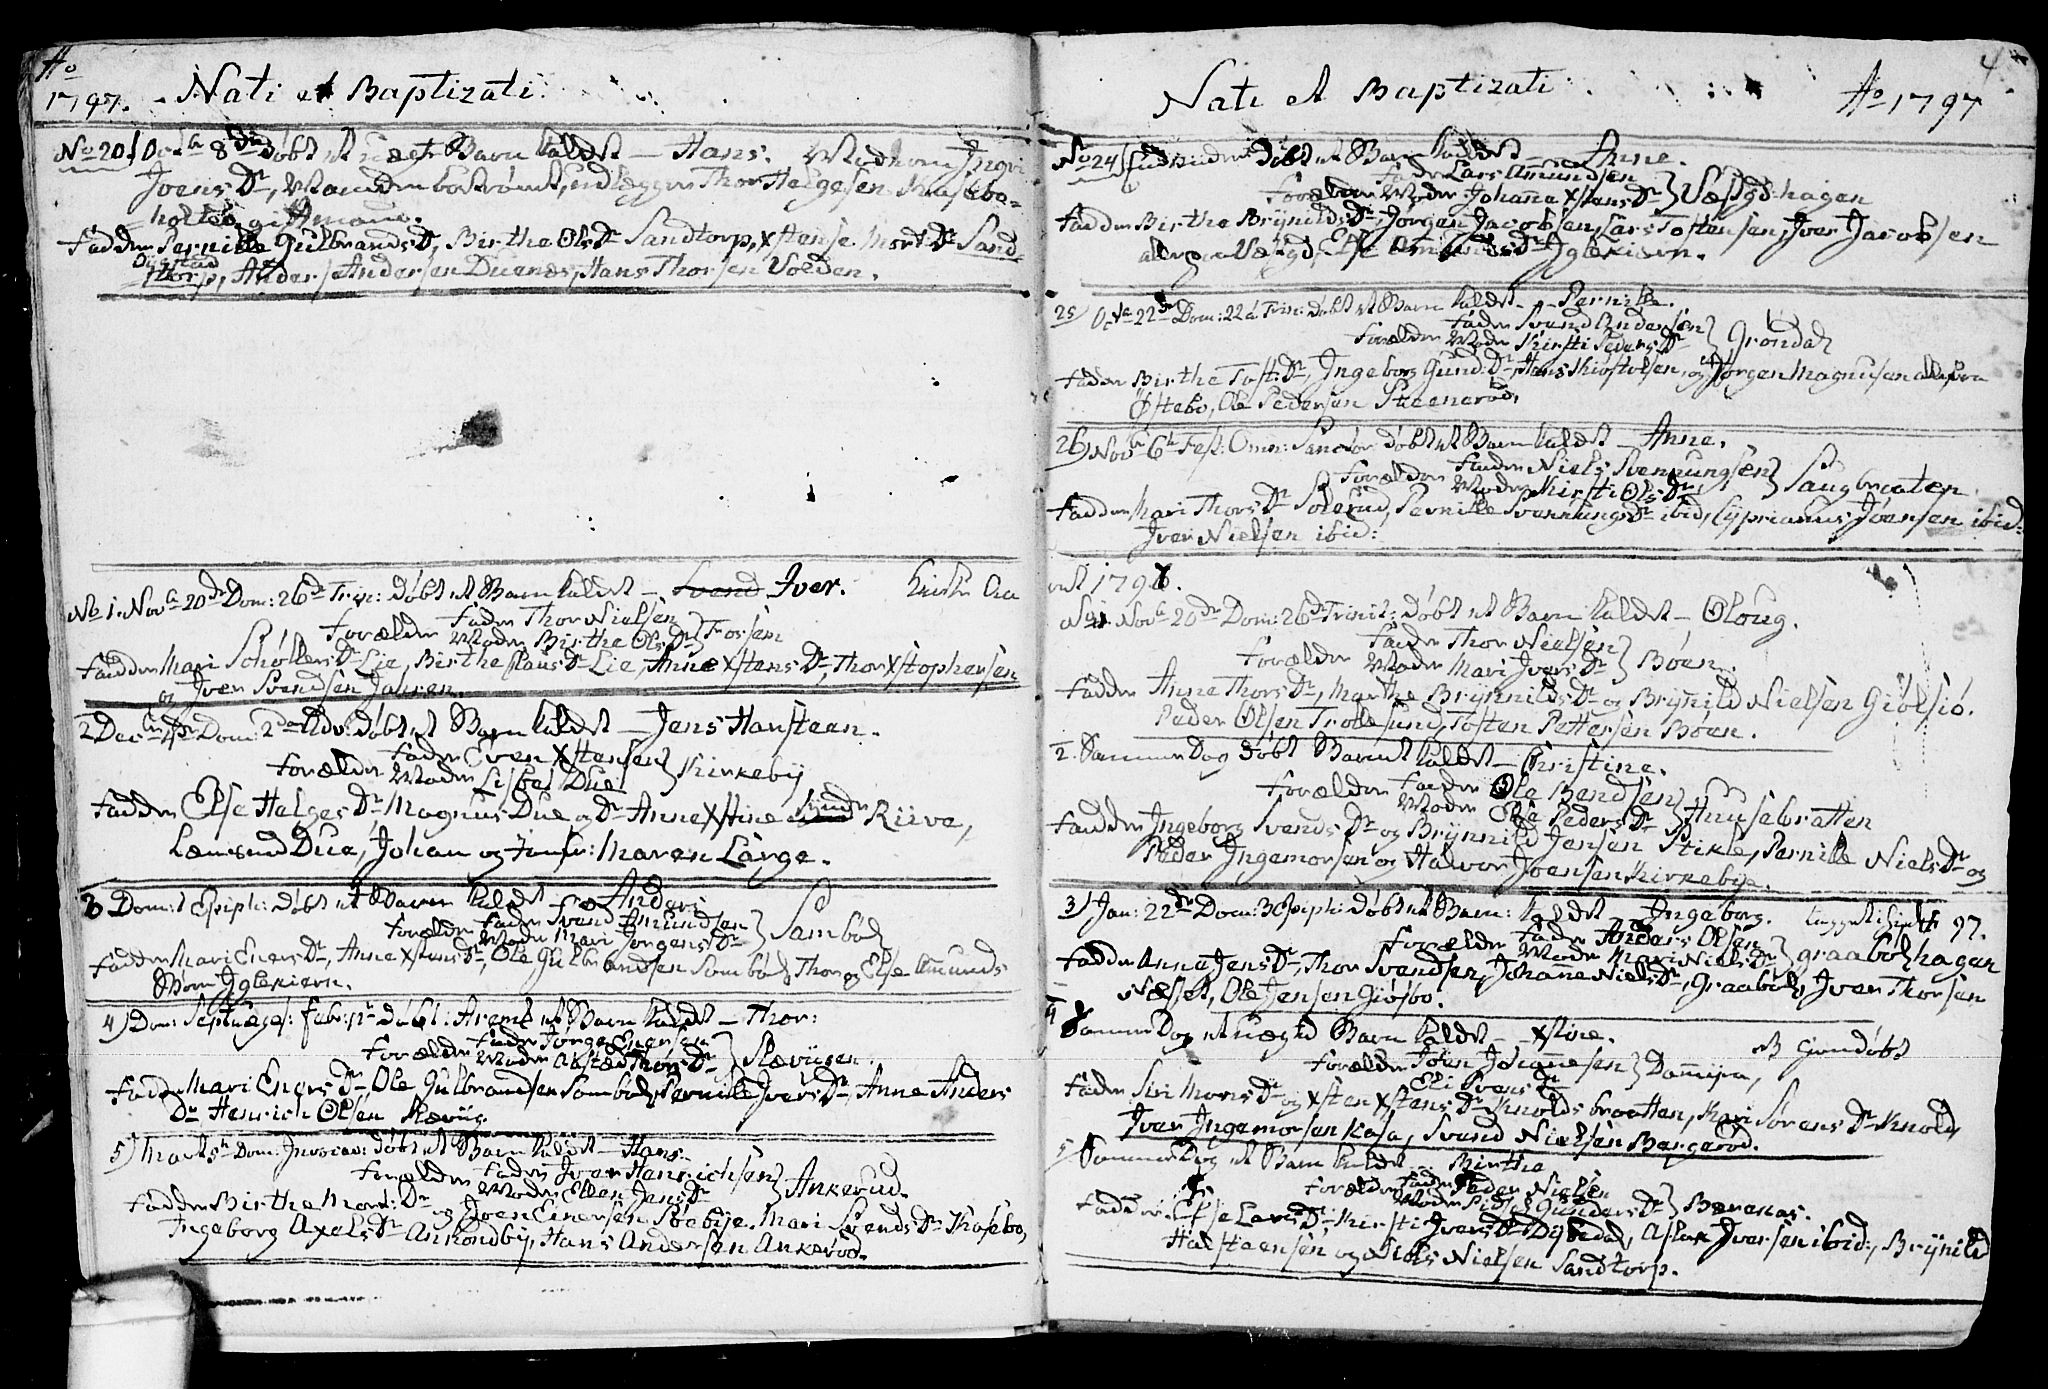 Ao
1797. Nati et Baptizati
No 20 / Octb 8de døbt et uægte Barn kaldet — Hans. Moderen Ingri
Joens Dr, Manden berømt, udlægger Thor Helgesen
gift Mand.
Faddere Pernille Gulbrands Dr, Birthe Ols Dr Sandtorp, Xstense Mort: Dr Sand-
thorp, Anders Andersen Duenæs, Hans Thorsen Volden.
No 1. Novb 20de Dom: 26de Trin: døbt et Barn kaldet — Svend Iver.
Forælder Fader Thor Nielsen
Moder Birthe Ols Dr } Frosen
Fadder Mari Schøllers Dr Lie, Birthe Klaus Dr Lie, Anne Xstens Dr, Thor Xstophersen
og Iver Svendsen Jahren.
2 Decbr 4de Dom: 2da Adv: døbt et Barn kaldet — Jens Hansteen.
Forælder Fader Even Xstensen
Moder Lisbet Due } Kirkebÿ
Fadder Else Helges Dr Magnus Due og Dr Anne Xstine Riive,
Due, Johan og Jomfr: Maren Large.
3 Dom: 1 Epiph: døbt et Barn kaldet — Anders
Forælder Fader Svend Amundsen
Moder Mari Jørgens Dr } Sambøl
Fadder Mari Eners Dr, Anne Xstens Dr, Ole Gulbrandsen Sombøl, Thor og Else Amunds
Børn Iglekiern.
4) Dom: Septuages: Febr: døbt: et Barn kaldet — Thor:
Forælder Fader Jørge Enersen
Moder Thors Dr } Slæviigen
Fadd: Mari Eners Dr Ole Gulbrandsen Sombøl, Pernille Ivers Dr, Anne Anders
Dr Henrich Olsen Slæviig.
5) Marts Dom: Invocav: døbt et Barn kaldet — Hans
Forælder Fader Iver Henrichsen
Moder Ellen Jens Dr } Ankerud.
Fadder Birthe Mort: Dr og Joen Einersen Søebÿe, Mari Svends Dr Kasebo,
Ingeborg Axels Dr Ankondbÿ, Hans Andersen Ankerød.
4
Nati et Baptizati Ao 1797
No 24 / døbt et Barn kaldet — Anne.
Forælder Fader Lars Amundsen
Moder Johanne Xstens Dr } hagen
Fadder Birthe Brÿnilds Dr Jørgen Jacobsen, Lars Tostensen, Iver Jacobsen
alle paa, Else Amunds Dr Iglekiern.
25) Octb 22de Dom: 22 a Trin: døbt et Barn kaldet — Pernille.
Forælder Fader Svend Andersen
Moder Kirsti Peders Dr } Grøndal
Fadder Birthe Tost: Dr, Ingeborg Gund: Dr, Hans Kiøstolsen, og Jørgen Magnusen alle fra
Østebø, Ole Pedersen Steenerød.
26) Novb 6te Fest: Omn: Sanctor: døbt et Barn kaldet — Anne.
Forælder Fader Niels Svennungsen
Moder Kirsti Ols Dr } Saugbraaten
Fadder Mari Thors Dr Solerud, Pernille Svennungs Dr ibid, Cyprianus Joensen ibid:
Iver Nielsen ibid:
1797.
No 1. Novb 20de Dom: 26de Trinit: døbt et Barn kaldet — Oloug.
Forælder Fader Thor Nielsen
Moder Mari Ivers Dr } Bøen.
Fadder Anne Thors Dr, Marthe Brÿnnilds Dr og Brÿnild Nielsen Giølsiø.
Peder Olsen Trollesund, Tosten Pettersen Bøen.
2. Samme Dag døbt Barnet kaldet — Christine.
Forælder Fader Ole Bendsen
Moder Else Peders Dr } Huusebratten
Fadder Ingeborg Svends Dr og Brÿnnild Jensen Stikle, Pernille Niels Dr og
Peder Ingemorsen og Halvor Joensen Kirkebÿe.
3) Jan: 22de Dom: 3 Epiph: døbt et Barn: kaldet — Ingeborg. 97.
Forælder Fader Anders Olsen
Moder Mari Niels Dr } graabølhagen
Fadder Anne Jens Dr, Thor Svendsen, Johane Niels Dr, Graabøl, Iver Thorsen
Næsset, Ole Jensen Giøsbo.
4 Samme Dag et uægte Barn kaldet — Xstine.
Forælder John Johannesen
Eli Svens Dr }
Fadder Siri Mons Dr og Xsten Xstens Dr Knoldsbraatten, Kari Sørens Dr Knold
Iver Ingemorsen Kasa, Svend Nielsen Bergerød.
5) Samme Dag et Barn kaldet — Birthe
Forælder Fader Peder Nielsen
Moder Gunders Dr } Bærenæs.
Fadder. Else Lars Dr Kirsti Ivers Dr Dÿbedal, Aslak Iversen ibid:, Brÿnild
Halsteensen og Niels Nielsen Sandtorp.